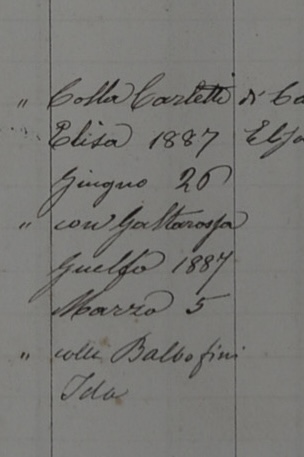 " Colla Carletti di Ca
Elisa 1887 Elisa
Giugno 26
" con Gattarossa
Guelfo 1887
Marzo 5
" colla Balbo fini
Ida